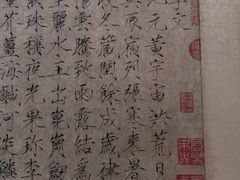 字文
元黃宇宙洪荒日
辰宿列張寒來暑
冬藏閏餘成歲律
陽雲騰致雨露結為
麗水玉出崑岡劍
珠稱夜光果珍李
芥薑海鹹河淡鱗